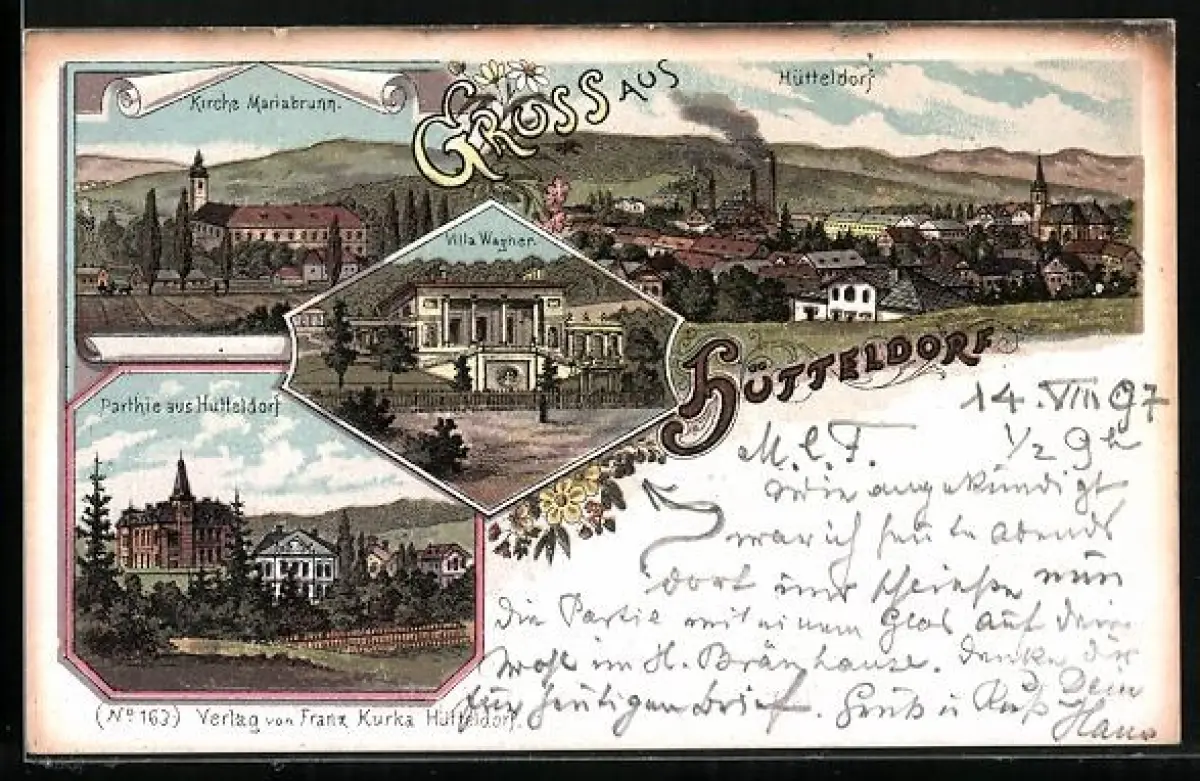 Kirche Mariabrunn.
GROSS AUS
Hütteldorf
Villa Wagner.
HÜTTELDORF
Parthie aus Hütteldorf
14. VIII 97
M. l. F. ½ 9h
Wie angekündigt
war ich heute abends
dort und schließe nun
die Partie mit einem Glas auf dein
Wohl im H. Bräuhause. Danke dir
für heutigen Brief. Gruß u Kuß Dein
Hans
(No 163) Verlag von Franz Kurka Hütteldorf.